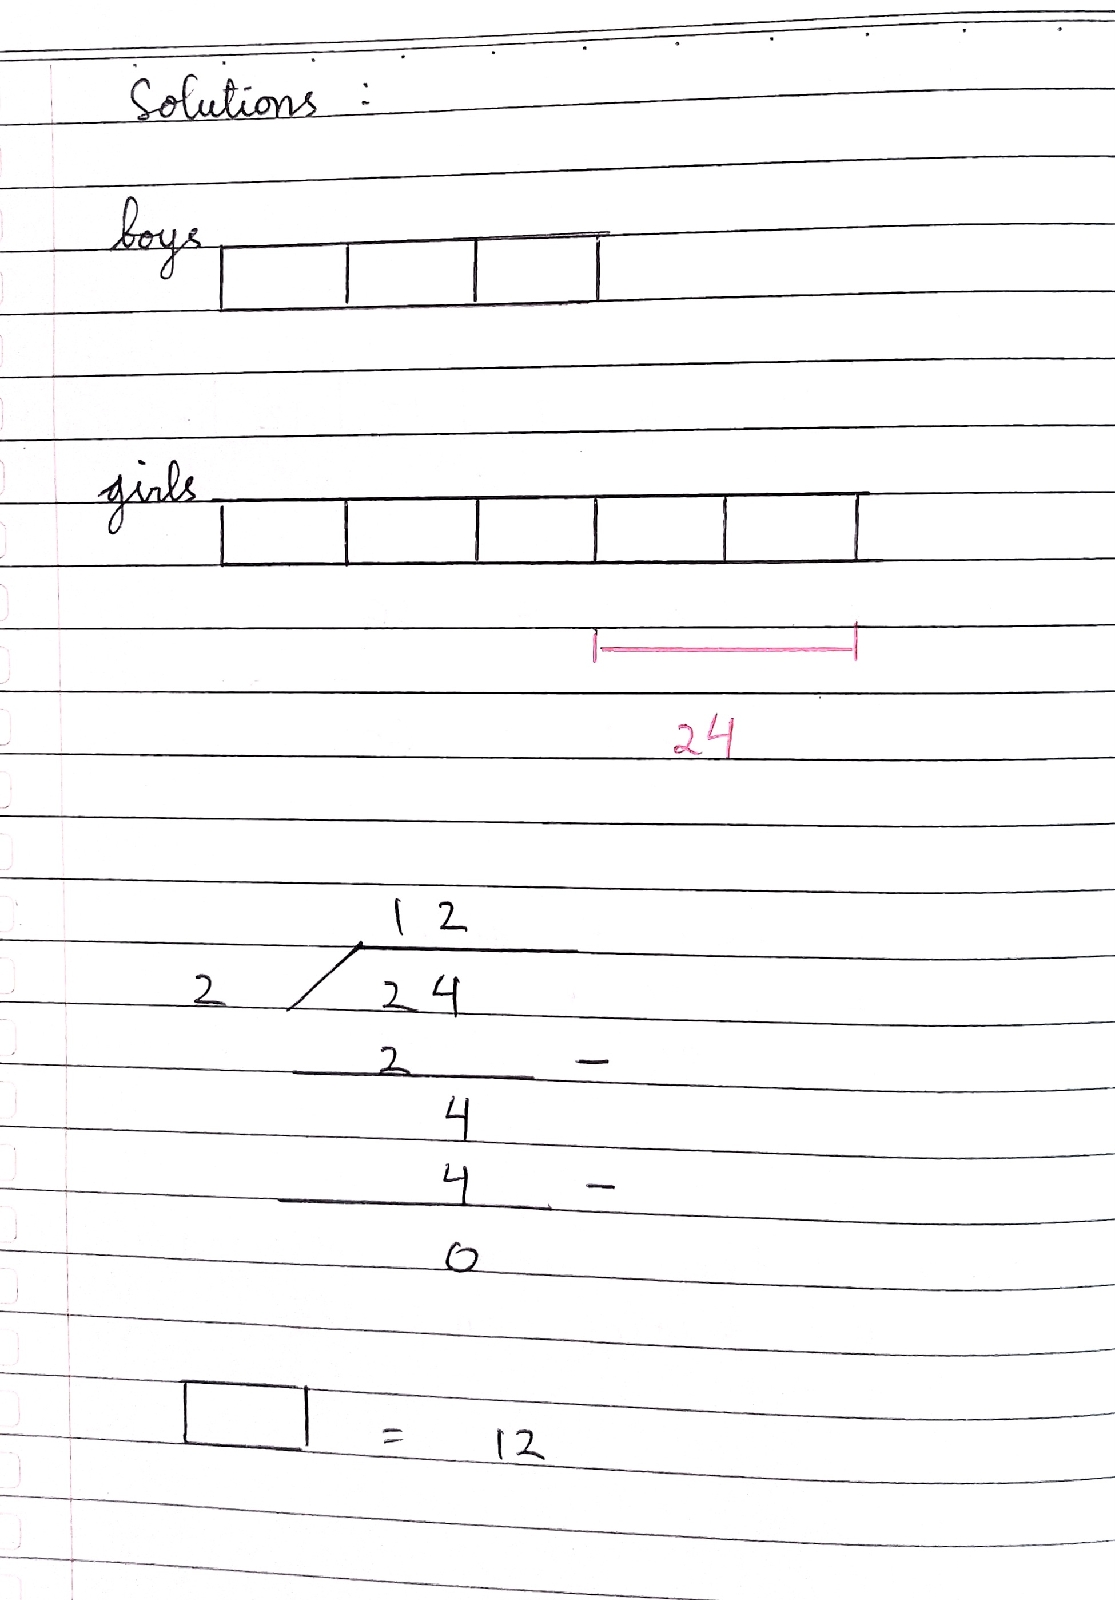 Solutions :
boys
girls
24
12
2 24
2 -
4
4 -
0
= 12